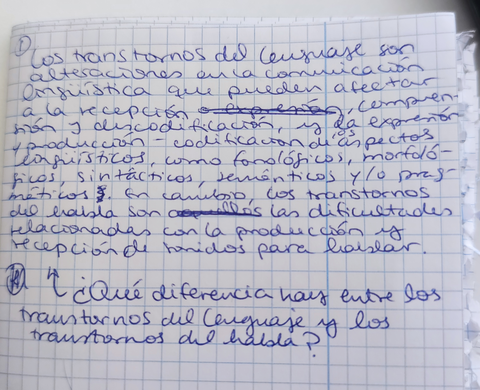 1) Los transtornos del lenguaje son
alteraciones en la comunicación
lingüística que pueden afectar
a la recepción expresión, compren-
sión y descodificación, y la expresión
y producción - codificación de aspectos
lingüísticos, como fonológicos, morfoló-
gicos, sintácticos, semánticos y/o prag-
máticos. En cambio, los transtornos
del habla son las dificultades
relacionadas con la producción y
recepción de sonidos para hablar.
¿Qué diferencia hay entre los
transtornos del lenguaje y los
transtornos del habla?